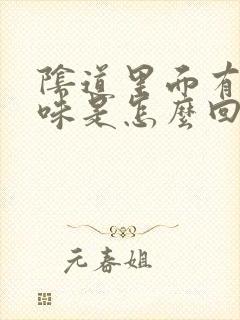 陰道里面有
味是怎麼回
元春姐